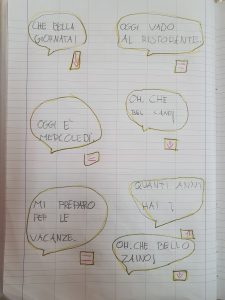 CHE BELLA
GIORNATA!
OGGI VADO
AL RISTORANTE.
OGGI È
MERCOLEDÌ.
OH, CHE
BEL
MI PREPARO
PER LE
VACANZE.
QUANTI ANNI
HAI ?
OH, CHE BELLO
ZAINO!